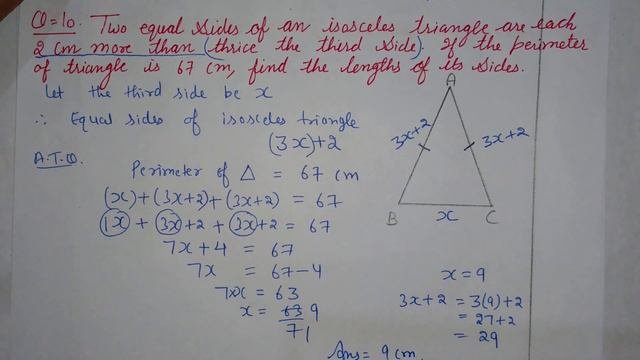 Q=10. Two equal sides of an isosceles triangle are each
2 cm more than (thrice the third side). If the perimeter
of triangle is 67 cm, find the lengths of its sides.
Let the third side be x
∴ Equal sides of isosceles triangle
(3x)+2
A.T.Q.
Perimeter of △ = 67 cm
(x)+(3x+2)+(3x+2) = 67
1x + 3x+2 + 3x+2 = 67
7x+4 = 67
7x = 67-4
7xx = 63
x = 63 9
7 1
A
3x+2
3x+2
B
x
C
x = 9
3x+2 = 3(9)+2
= 27+2
= 29
Ans = 9 cm,